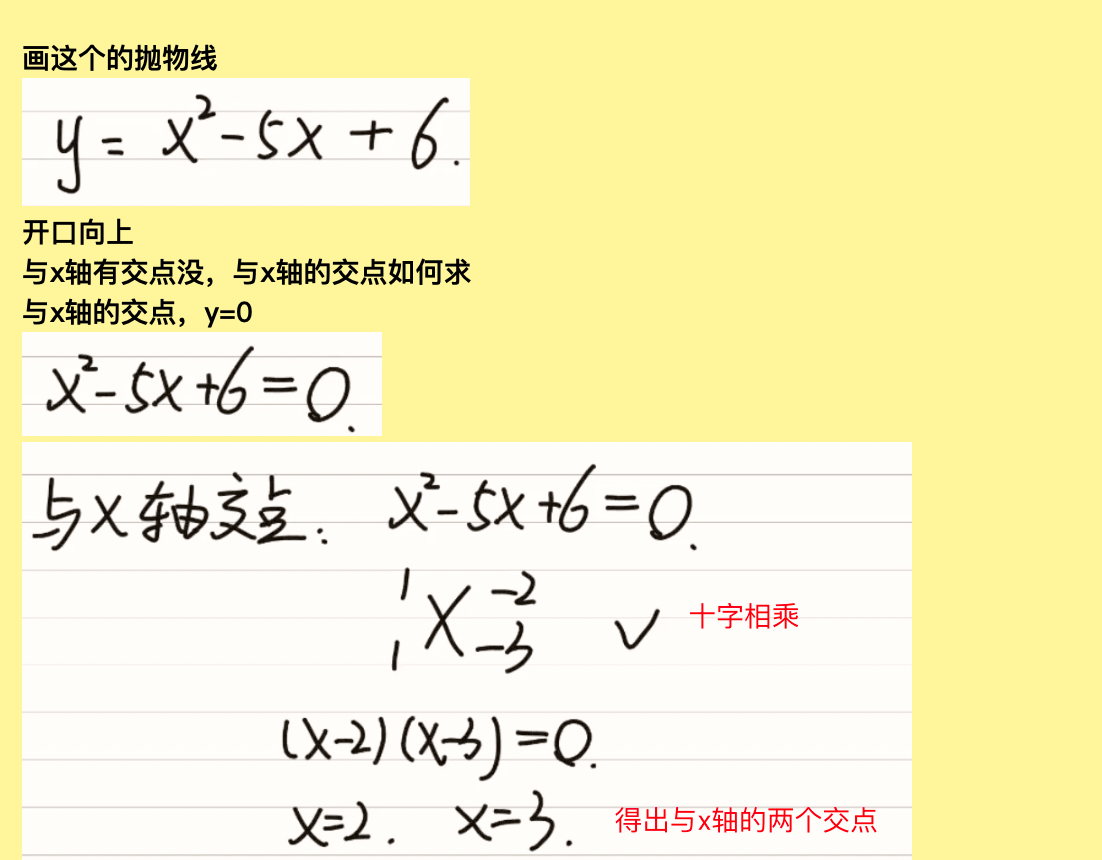 画这个的抛物线
y = x² - 5x + 6.
开口向上
与x轴有交点没，与x轴的交点如何求
与x轴的交点，y=0
x² - 5x + 6 = 0.
与x轴交点： x² - 5x + 6 = 0.
1 -2
X ✓ 十字相乘
1 -3
(x-2)(x-3)=0.
x=2. x=3. 得出与x轴的两个交点